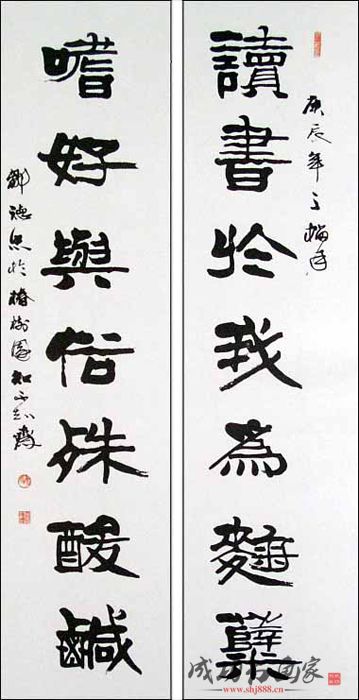 讀書於我為麴糵
庚辰年之
嗜好與俗殊酸鹹
德 於椿樹園知不知齋
成功书画家
www.shj888.cn